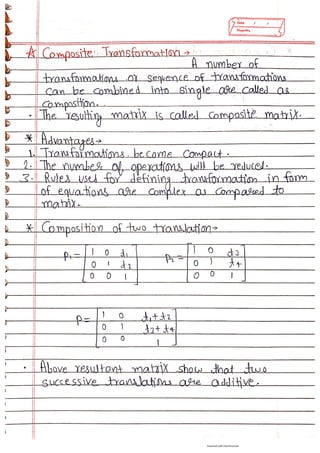 Date / /
☆ Composite Transformation →
A number of
transformations or sequence of transformations
can be combined into single are called as
composition.
• The resulting matrix is called composite matrix.
* Advantages →
1. Transformations become compact.
2. The number of operations will be reduced.
3. Rules used for defining transformation in form
of equations are complex as compared to
matrix.
* Composition of two translation →
P1 = [ 1 0 t1 P2 = [ 1 0 t3
0 1 t2 0 1 t4
0 0 1 ] 0 0 1 ]
P = [ 1 0 t1+t3
0 1 t2+t4
0 0 1 ]
• Above resultant matrix show that two
successive translations are additive.